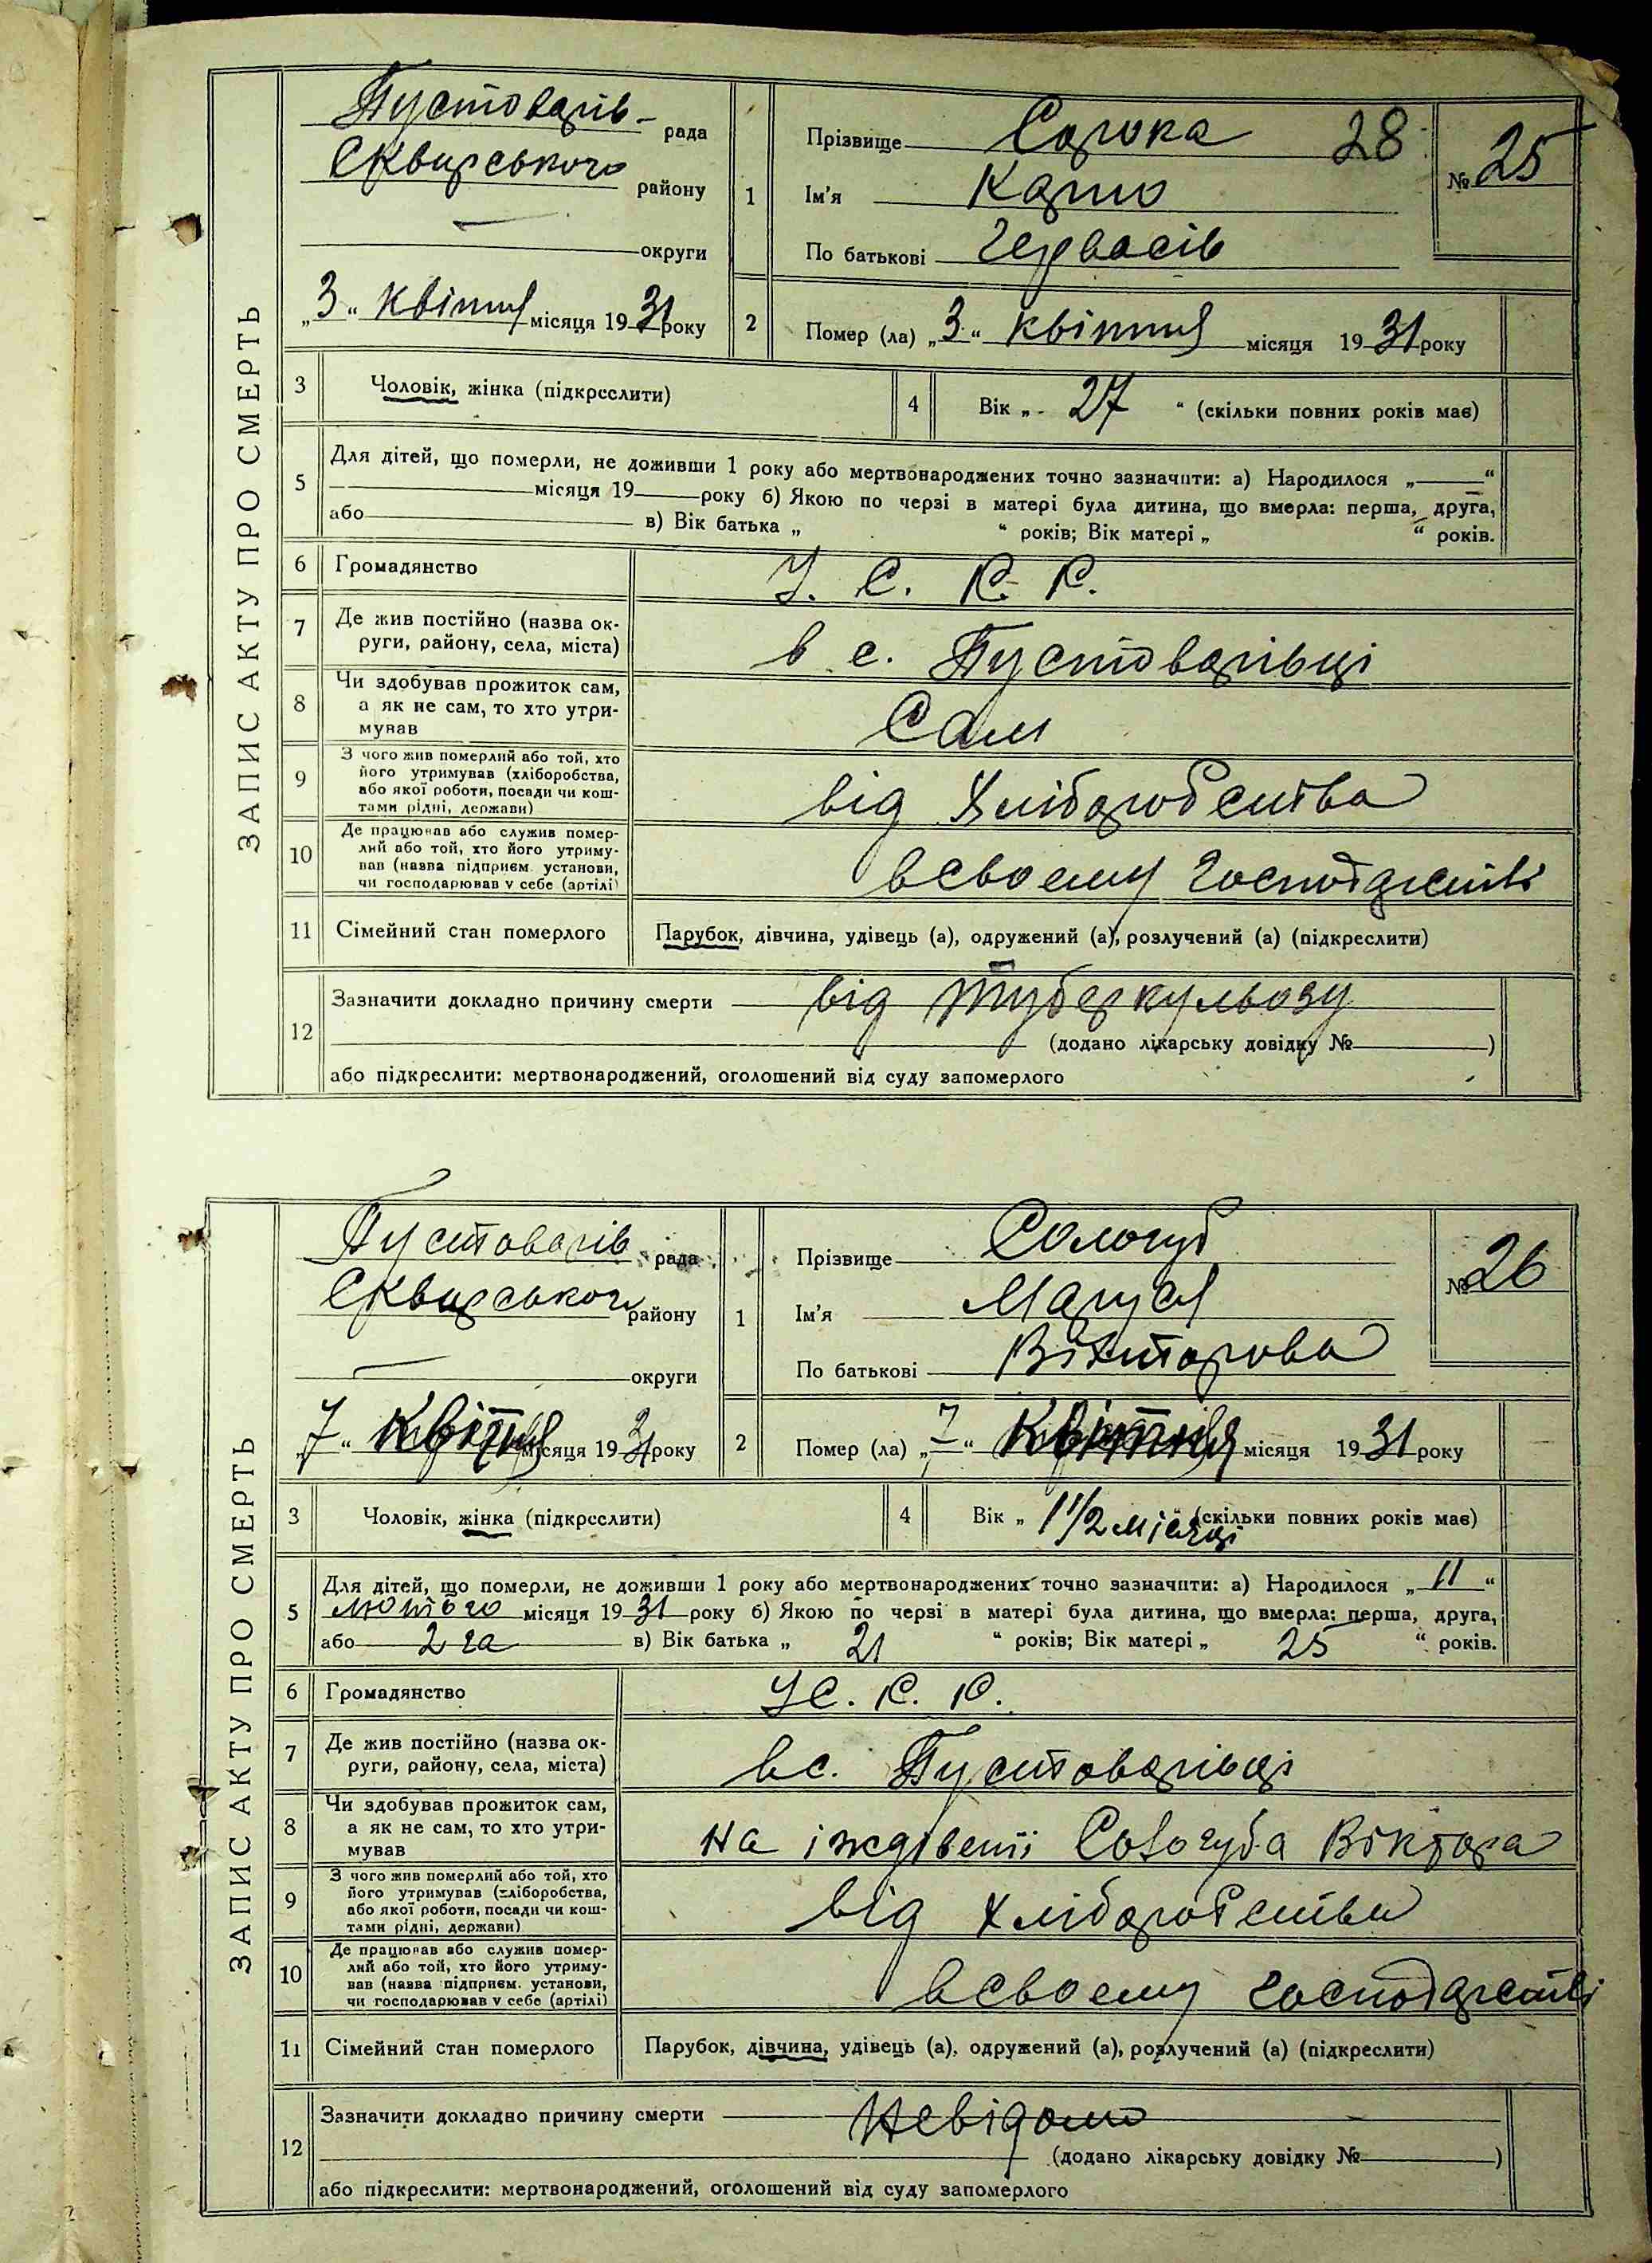 ЗАПИС АКТУ ПРО СМЕРТЬ
Пустоварів- рада
Сквирського району
округи
„3“ квітня місяця 1931 року
1
Прізвище Сорока 28
Ім'я Карпо
По батькові Гервасів
№ 25
2 Помер (ла) „3“ квітня місяця 1931 року
3 Чоловік, жінка (підкреслити)
4 Вік „ 27 “ (скільки повних років має)
5 Для дітей, що померли, не доживши 1 року або мертвонароджених точно зазначити: а) Народилося „ “
місяця 19 року б) Якою по черзі в матері була дитина, що вмерла: перша, друга,
або в) Вік батька „ “ років; Вік матері „ “ років.
6 Громадянство У. С. Р. Р.
7 Де жив постійно (назва ок-
руги, району, села, міста) в с. Пустоварівці
8 Чи здобував прожиток сам,
а як не сам, то хто утри-
мував Сам
9 З чого жив померлий або той, хто
його утримував (хліборобства,
або якої роботи, посади чи кош-
тами рідні, держави) від Хліборобства
10 Де працював або служив помер-
лий або той, хто його утриму-
вав (назва підприєм. установи,
чи господарював у себе (артілі) всвоему господарстві
11 Сімейний стан померлого Парубок, дівчина, удівець (а), одружений (а), розлучений (а) (підкреслити)
12 Зазначити докладно причину смерти від туберкульозу
(додано лікарську довідку № )
або підкреслити: мертвонароджений, оголошений від суду запомерлого
ЗАПИС АКТУ ПРО СМЕРТЬ
Пустоварів рада
Сквирського району
округи
„7“ квітня місяця 1931 року
1
Прізвище Сологуб
Ім'я Маруся
По батькові Вікторова
№ 26
2 Помер (ла) „7“ квітня місяця 1931 року
3 Чоловік, жінка (підкреслити)
4 Вік „ 1 1/2 місяці “ (скільки повних років має)
5 Для дітей, що померли, не доживши 1 року або мертвонароджених точно зазначити: а) Народилося „ 11 “
лютого місяця 1931 року б) Якою по черзі в матері була дитина, що вмерла: перша, друга,
або 2 га в) Вік батька „ 21 “ років; Вік матері „ 25 “ років.
6 Громадянство УС. Р. Р.
7 Де жив постійно (назва ок-
руги, району, села, міста) вс. Пустоварівці
8 Чи здобував прожиток сам,
а як не сам, то хто утри-
мував на іждівенії Сологуба Віктора
9 З чого жив померлий або той, хто
його утримував (хліборобства,
або якої роботи, посади чи кош-
тами рідні, держави) від хліборобства
10 Де працював або служив помер-
лий або той, хто його утриму-
вав (назва підприєм. установи,
чи господарював у себе (артілі) всвоему господарстві
11 Сімейний стан померлого Парубок, дівчина, удівець (а), одружений (а), розлучений (а) (підкреслити)
12 Зазначити докладно причину смерти Невідомо
(додано лікарську довідку № )
або підкреслити: мертвонароджений, оголошений від суду запомерлого